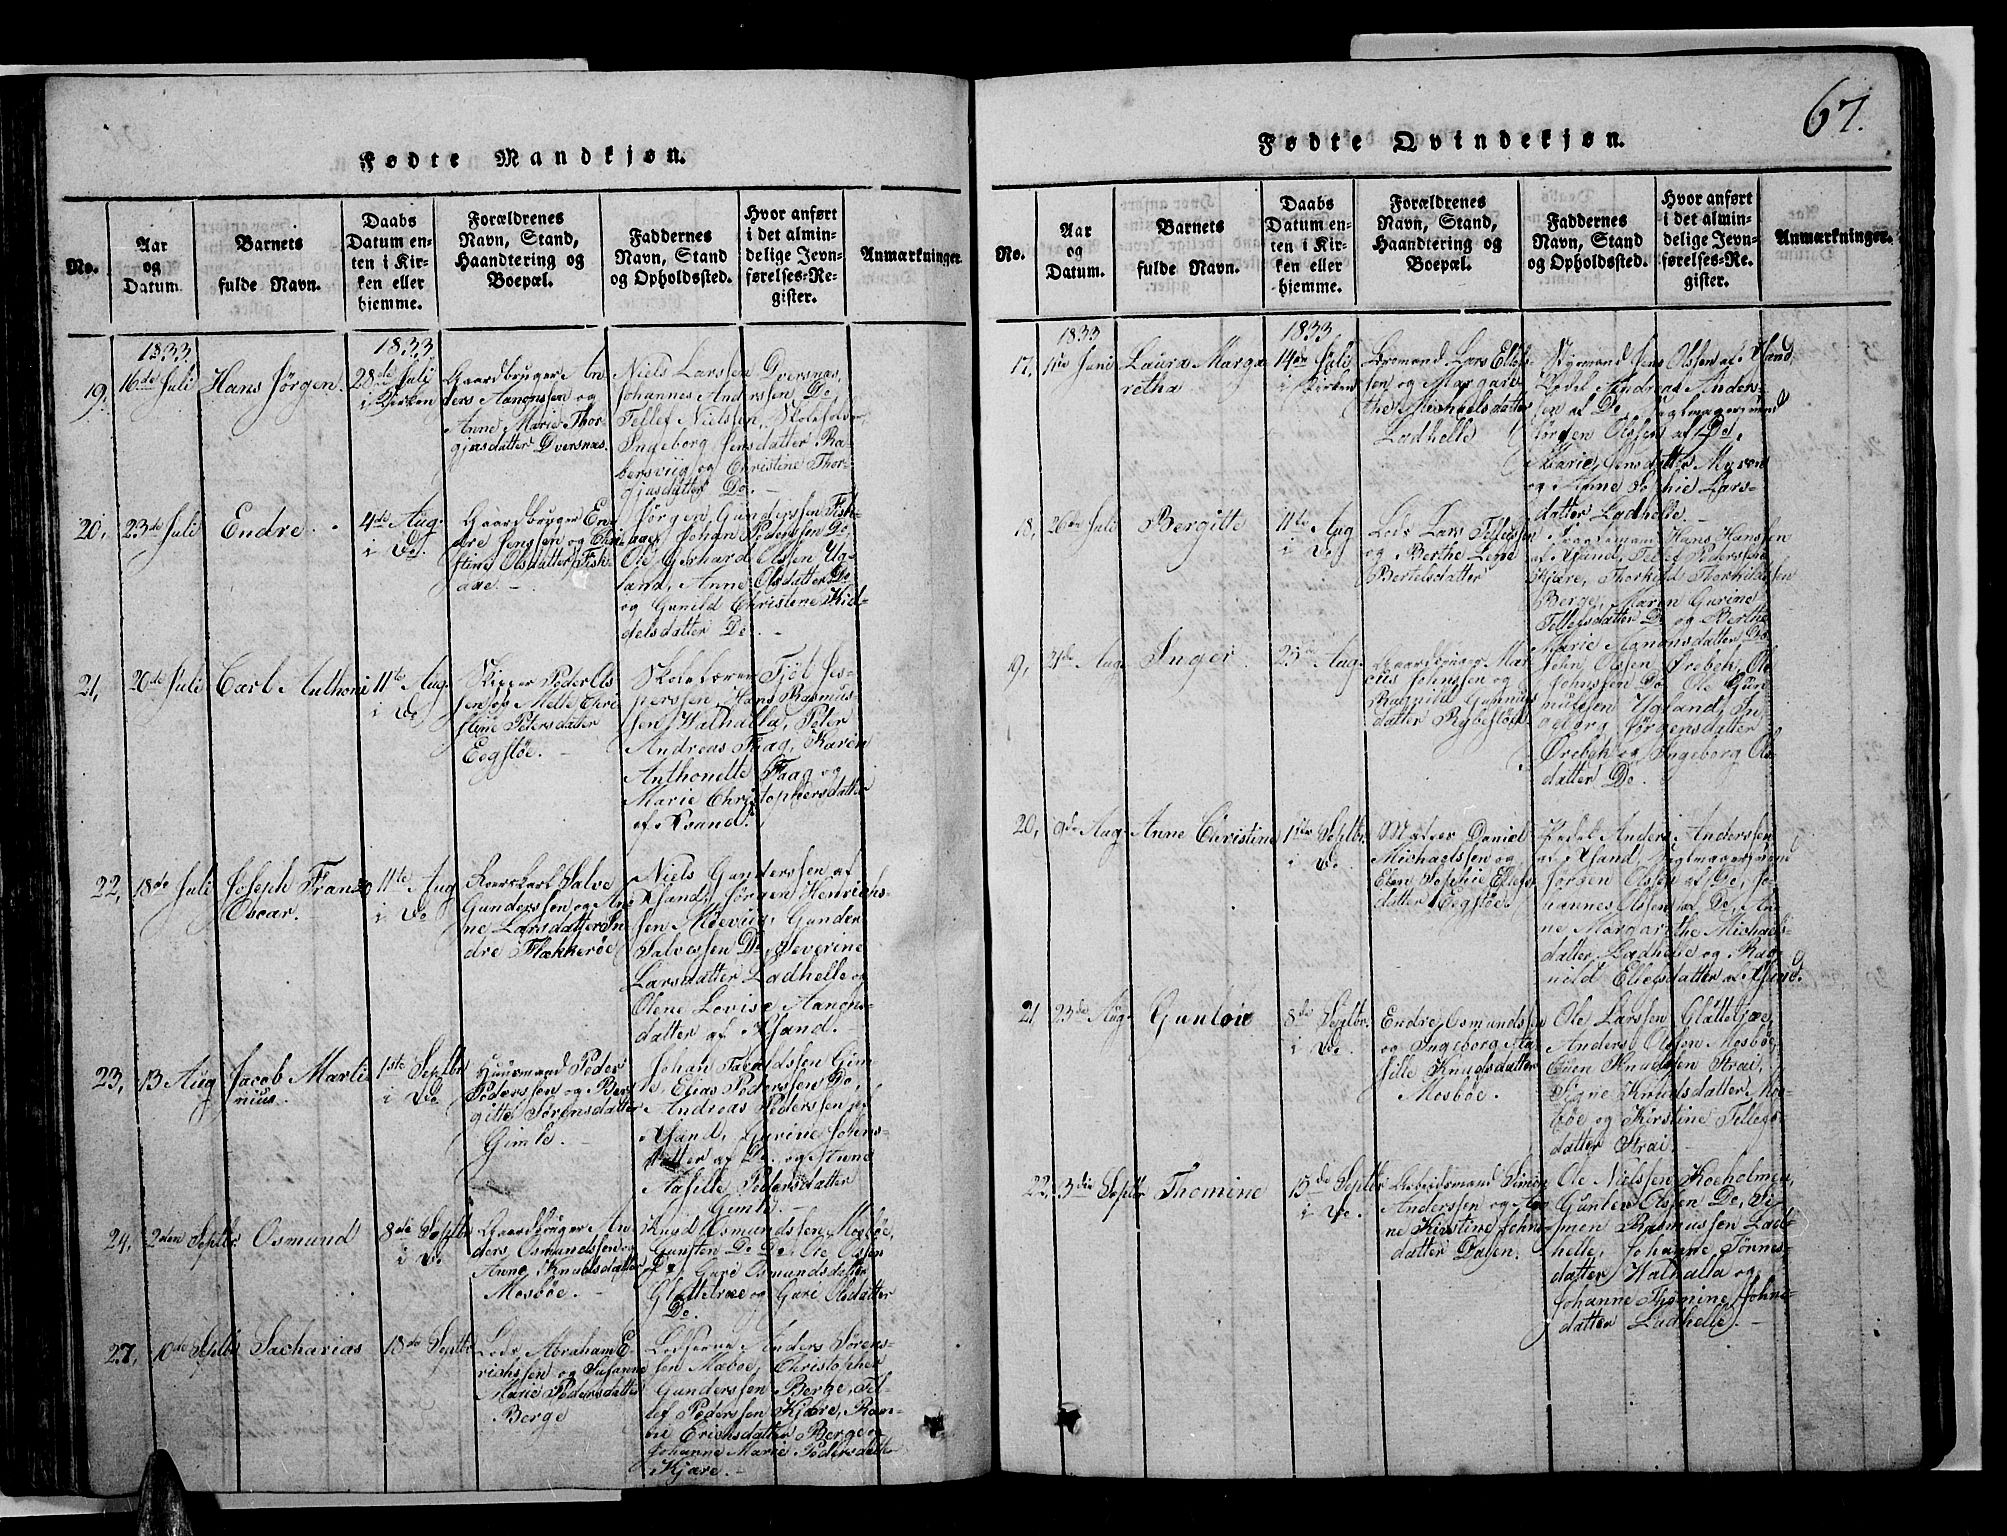 67.
Fødte Mandkjøn.
No.
Aar
og
Datum.
Barnets
fulde Navn.
Daabs
Datum en-
ten i Kir-
ken eller
hjemme.
Forældrenes
Navn, Stand,
Haandtering og
Boepæl.
Faddernes
Navn, Stand
og Opholdssted.
Hvor anført
i det almin-
delige Jevn-
førelses-Re-
gister.
Anmærkninger.
1833.
1833.
19,
16de Juli
Hans Jørgen.
28de Juli
i Kirken
Gaardbruger An-
ders Aanonssen og
Anne Marie Thor-
gjusdatter Dversnæs.
Niels Larssen Dversnæs,
Johannes Anderssen Do,
Tellef Nielssen,
Ingeborg Jensdatter Ra-
bersviig og Christine Thor-
gjusdatter Do. -
20,
23de Juli
Endre.
4de Aug.
i Do.
Gaardbruger En-
dre Jenssen og Chri-
stine Olsdatter Fisk-
aae. -
Jørgen Gunderssen Fisk-
aae, Johan Pederssen Do
Ole Gerhard Olssen Ug-
land, Anne Olsdatter Do
og Gunild Christene Kid-
delsdatter Do. -
21,
20de Juli
Carl Anthoni
11te Aug.
i Do
Skipper Peder Ols-
sen og Mette Chri-
stine Petersdatter
Eegstøe. -
Skolelærer Tjøl Jes-
perssen, Hans Rasmus-
sen Walhalla, Peter
Andreas Faag, Karen
Anthonette Faag og
Marie Christophersdatter
af Xsand.
22,
18de Juli
Joseph Frans
Oscar.
11te Aug
i Do
Salve
Gunderssen og An-
ne Larsdatter In-
dre Flækkerøe
Niels Gunderssen af
Xsand, Jørgen Henrichs-
sen Møevig, Gunder
Salvessen Do, Severine
Larsdatter Ladhelle og
Olene Lovise Aanons-
datter af Xsand.
23,
13 Aug
Jacob Marti-
nius.
1ste Septbr
i Do
Huusmand Peder
Pederssen og Ber-
gitte Sørensdatter
Gimle. -
Johan Taraldssen Gim-
le, Elias Pederssen Do,
Andreas Pederssen af
Xsand, Gurine Johns-
datter af Do. og Anne
Aasille Pedersdatter
Gimle. -
24,
2den Septbr.
Osmund
8de Septbr
i Do
Gaardbruger An-
ders Osmundssen og
Anne Knudsdatter
Mosbøe. -
Knud Osmundssen Mosbøe,
Gunsten Do Do, Ole Olssen
Do, Gure Osmundsdatter
Glattetræe og Gure Olsdatter
Do.
27,
10de Septbr
Sacharias
18de Septbr
Lods Abraham E-
richssen og Susanne
Marie Pedersdatter
Berge
Lodserne Anders Sørens-
sen Mæbøe, Christopher
Gunderssen Berge, Tel-
lef Pederssen Kjære, Ran-
ni Erichsdatter Berge og
Johanne Marie Pedersdatter
Kjære. -
Fødte Qvindekjøn.
No.
Aar
og
Datum.
Barnets
fulde Navn.
Daabs
Datum en-
ten i Kir-
ken eller
hjemme.
Forældrenes
Navn, Stand,
Haandtering og
Boepæl.
Faddernes
Navn, Stand
og Opholdssted.
Hvor anført
i det almin-
delige Jevn-
førelses-Re-
gister.
Anmærkninger.
1833
1833
17,
11te Juni
Laura Marga-
retha
14de Juli
i Kirken
Lars Ellef-
sen og Margare-
the Michaelsdatter
Ladhelle
Jens Olssen af Xsand,
Andreas Anders-
sen af Do,
Jørgen Olssen af Do,
Marie Jensdatter Myren
og Anne Sophie Lars-
datter Ladhelle. -
18,
26de Juli
Bergitte
11te Aug
i Do.
Lods Lars Tellefssen
og Berthe Lene
Bertelsdatter
Hans Hanssen
af Xsand, Tellef Pederssen
Kjære, Thorkild Thorkildssen
Berge, Maren Gurine
Tellefsdatter Do og Berthe
Marie Aanonsdatter Do
19,
21de Aug.
Inger
25de Aug.
Gaardbruger Mar-
cus Johnssen og
Ragnild Gunnuls-
datter Rybestøl
John Olssen Drebek, Ole
Johnssen Do, Ole Gun-
nulssen Ugland, In-
geborg Jørgensdatter
Drebek og Ingeborg Ols-
datter Do.
20,
9de Aug.
Anne Christine
1ste Septbr.
i Do.
Daniel
Michaelssen og
Elen Sophie Ellefs-
datter Eegstøe.
Pedel Anders Anderssen
af Xsand,
Jørgen Olssen af Do, Jo-
hannes Olssen af Do, An-
ne Margarethe Michaels-
datter Ladhelle og Rag-
nild Ellefsdatter af Xsand.
21
23de Aug.
Gunløu
8de Septbr.
i Do.
Endre Osmundssen
og Ingeborg Aa-
sille Knudsdatter
Mosbøe.
Ole Larssen Glattetræe,
Anders Olssen Mosbøe,
Even Knudssen Strai,
Signe Knudsdatter Mos-
bøe og Kirstine Tellefs-
datter Strai. -
22,
3die Septbr
Thomine
15de Septbr
i Do.
Arbeidsmand Simon
Anderssen og An-
ne Kirstine Johns-
datter Dalen.
Ole Nielssen Koeholmen,
Gunten Olssen Do, Si-
men Rasmussen Lad-
helle, Johanne Tønnes-
datter Walhalla og
Johanne Thomine Johns-
datter Ladhelle. -